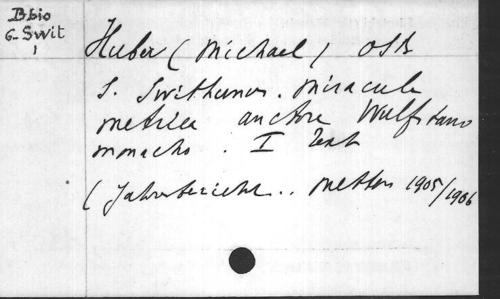 Bbio
G-Swit
1
Huber (Michael) OSB
S. Swithunus. Miracula
metrica auctore Wulfstano
monacho. I Text
(Jahresbericht.. Metten 1905/1906